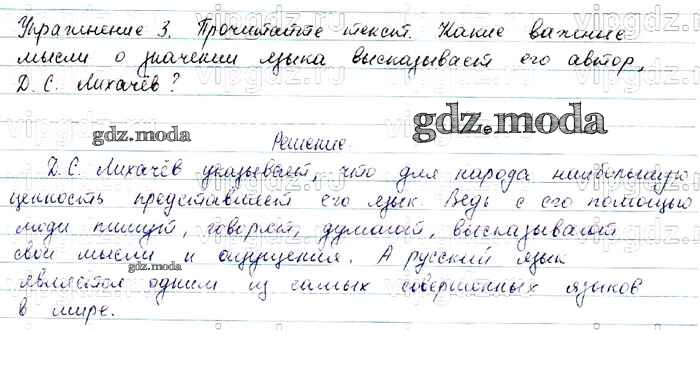 Упражнение 3. Прочитайте текст. Какие важные
мысли о значении языка высказывает его автор,
Д. С. Лихачёв?
gdz.moda
gdz.moda
Решение
Д. С. Лихачёв указывает, что для народа наибольшую
ценность представляет его язык. Ведь с его помощью
люди пишут, говорят, думают, высказывают
свои мысли и ощущения. А русский язык
gdz.moda
является одним из самых совершенных языков
в мире.